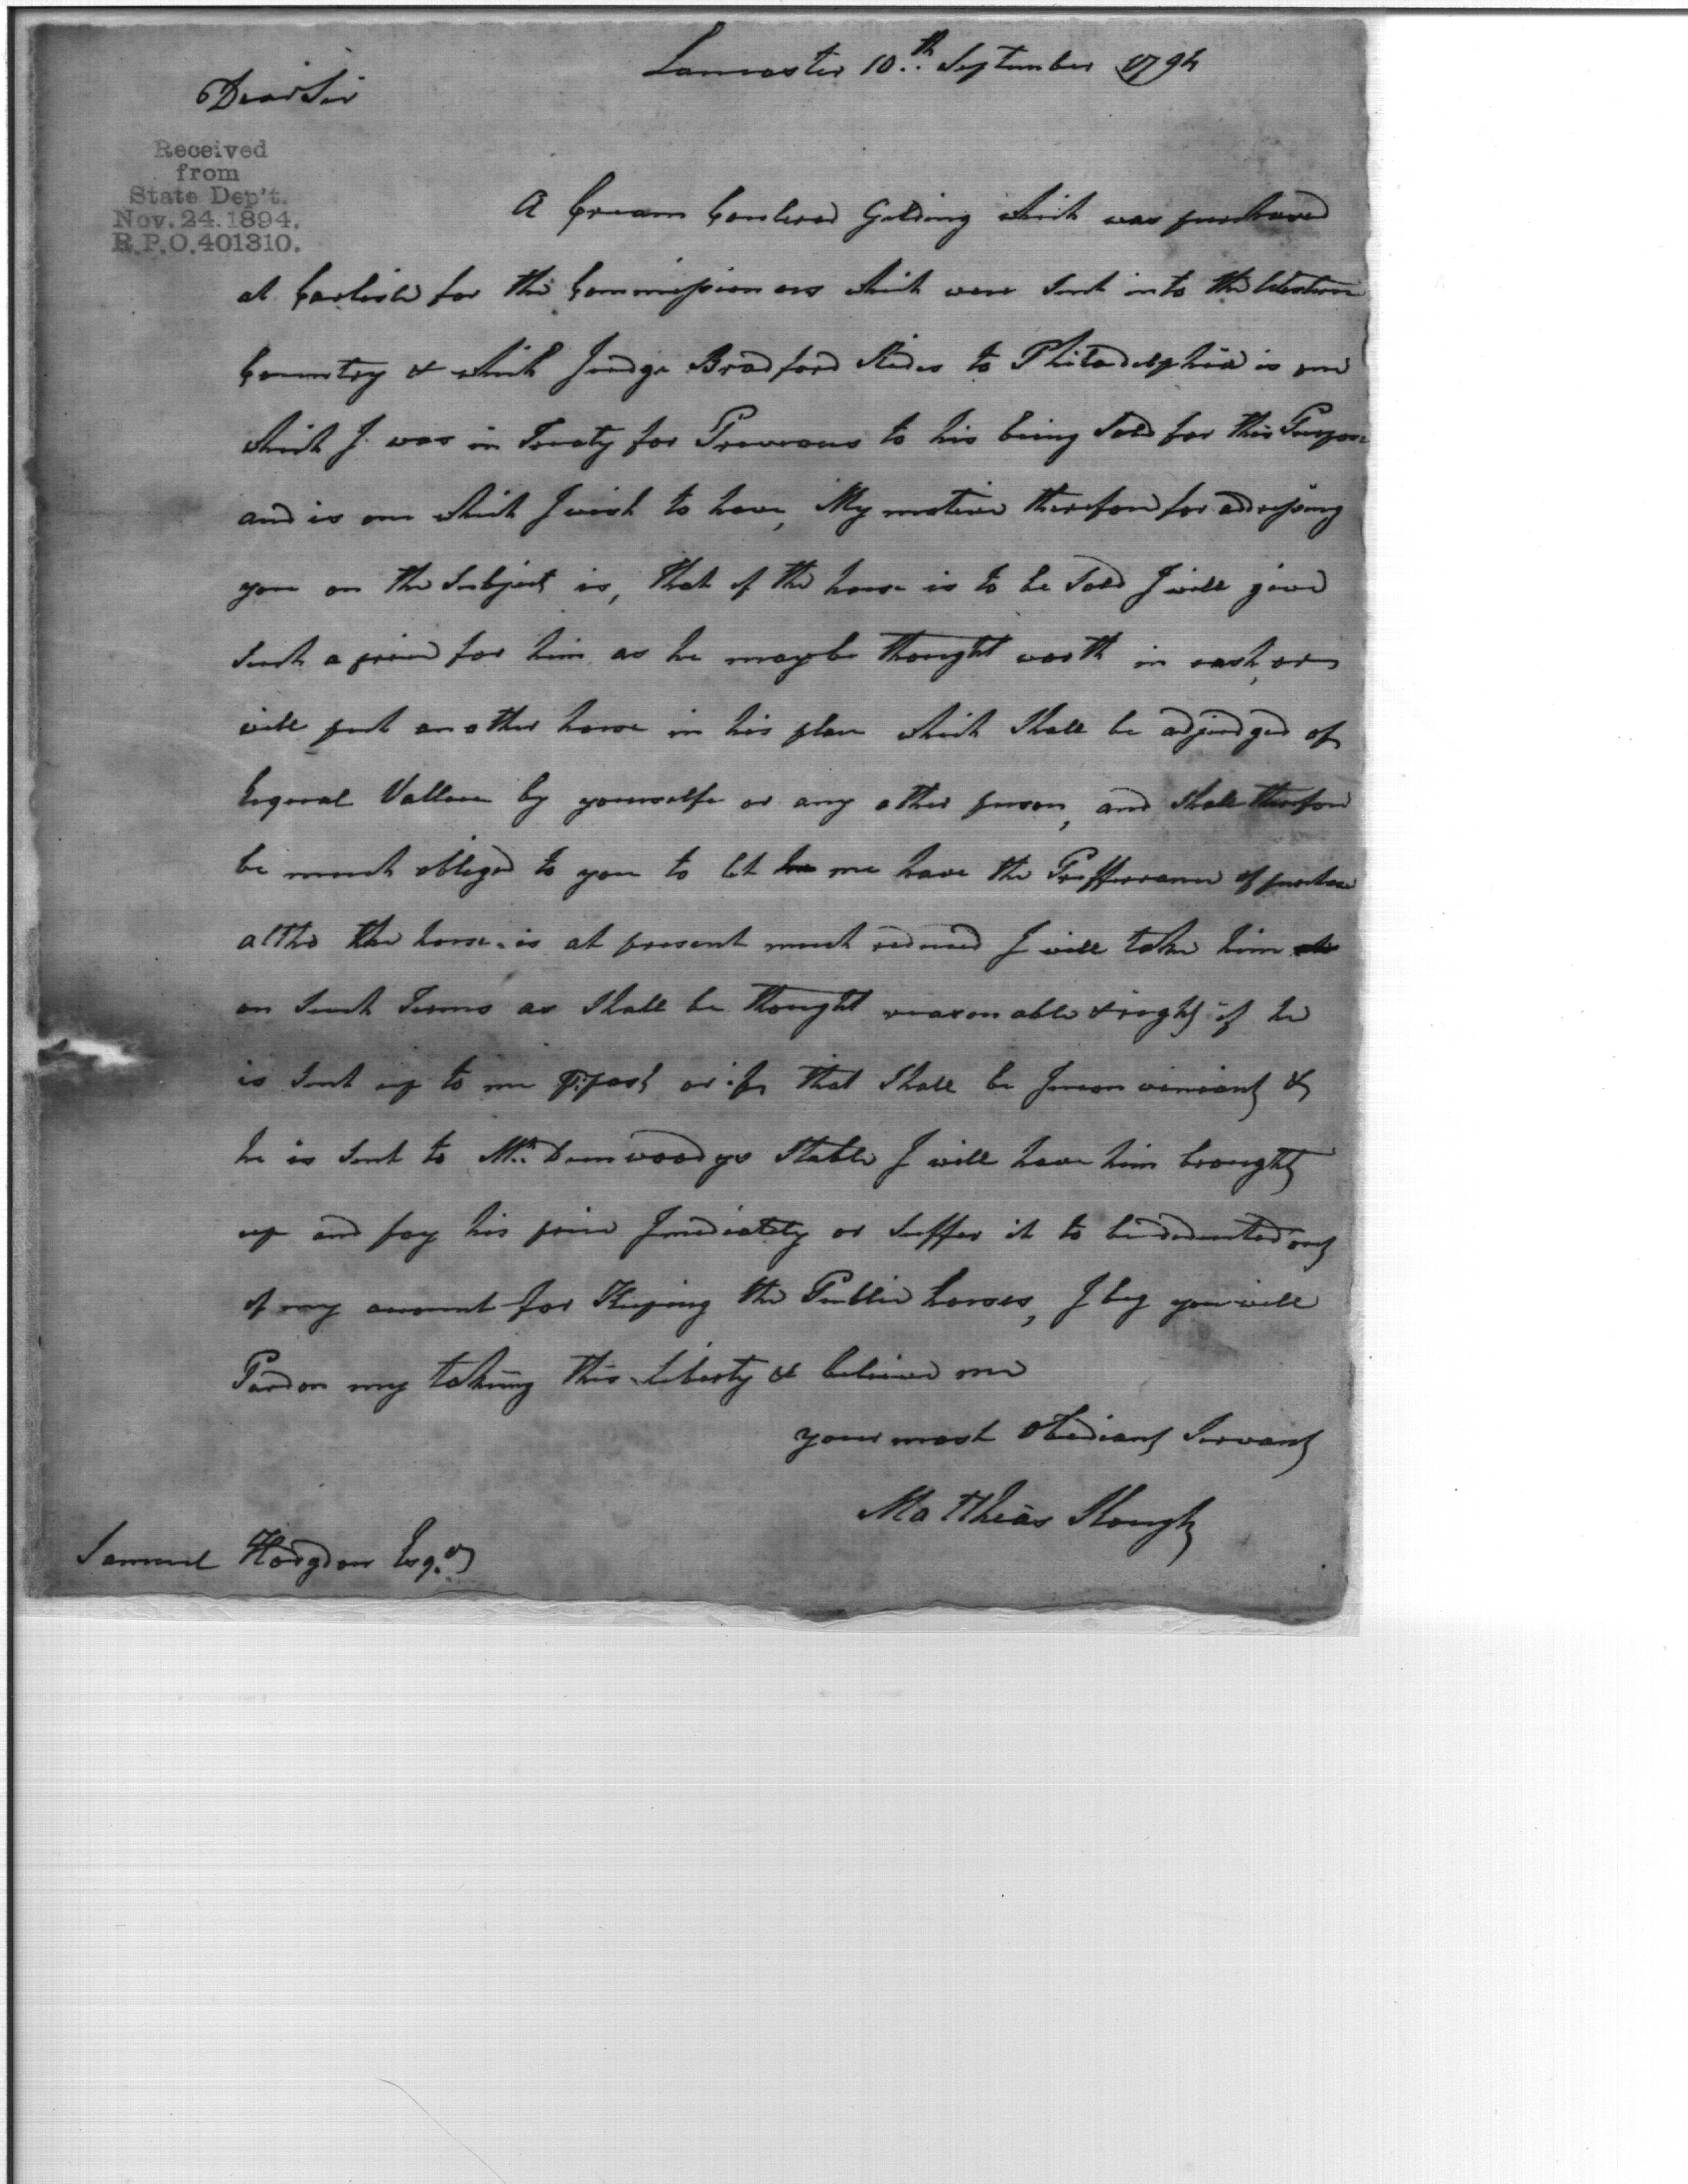 Lancaster 10th September 1794
Dear Sir
Received
from
State Dep't.
Nov. 24. 1894.
R.P.O. 401310.
A Cream Coulerad Gelding which was purchased
at Carlisle for the Commissioners which were Sent into the Western
Country & which Judge Bradford Rides to Philadelphia is one
which I was in Treaty for Preveaus to his being Sold for this Purpose
and is one which I wish to have, My motive therefore for addressing
you on the Subject is, that if the horse is to be Sold I will give
Such a price for him as he may be thought worth in cash, or
will put another horse in his place which Shall be adjudged of
Eequal Vallue by yourselfe or any other person, and Shall therefore
be much obliged to you to let me have the Prefferrance of purchase
altho the horse is at present much reduced I will take him
on Such Terms as Shall be thought reasonable & right if he
is Sent up to me or if that Shall be Inconveniant &
he is Sent to Mr. Dunwoodys Stable I will have him brought
up and pay his price Imediately or Suffer it to be deducted out
of my account for Keeping the Public horses, I beg you will
Pardon my taking this Liberty & believe me
your most Obediant Servant
Matthias Slough
Samuel Hodgdon Esqr.